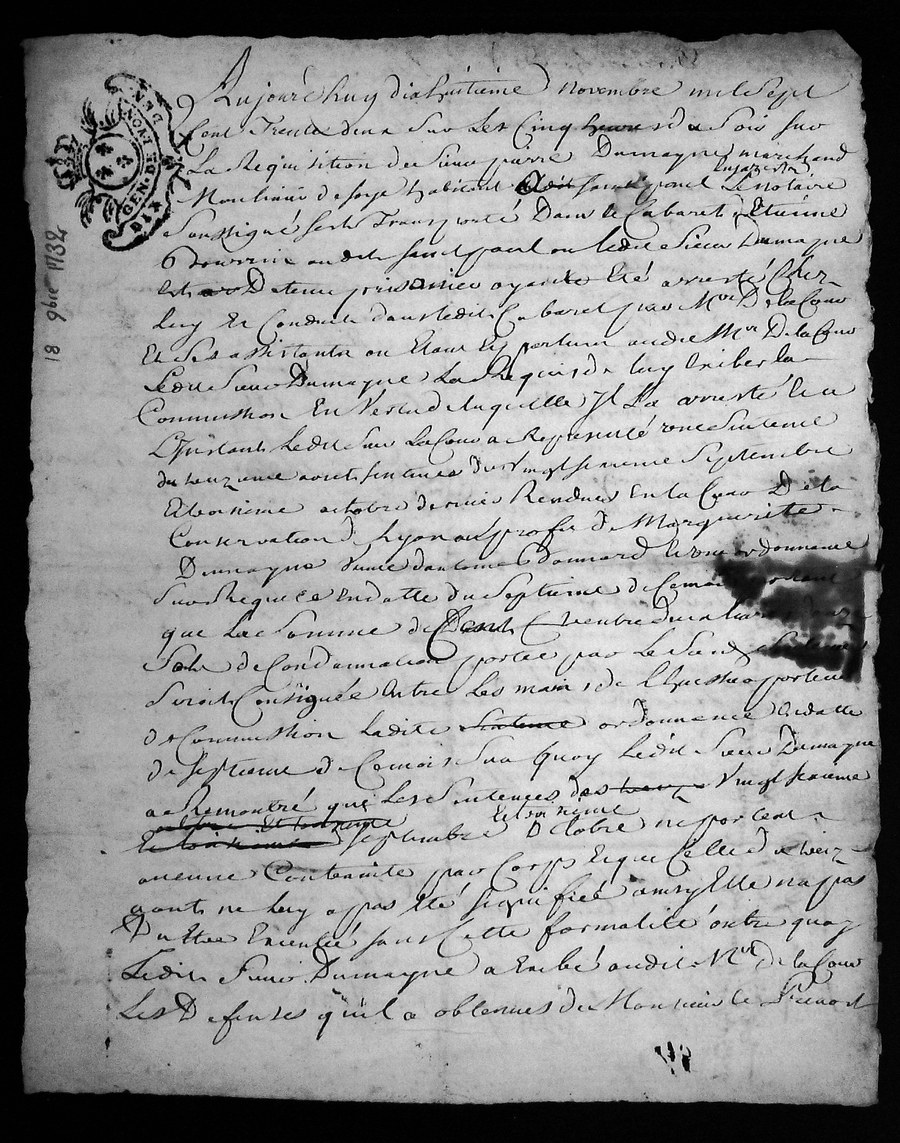 GEN. DE LYON
DIX DEN.
18 9bre 1732
Aujourdhuy dixhuitieme novembre mil sept
Cent Trente deux Sur Les Cinq heures du Soir sur
La Requisition de Sieur pierre Dumayne marchand
Moulinier de soye habitant audit saint paul Le notaire
Soussigné sest Transporté Dans le Cabaret d'Etienne
Bourrin audit saint paul ou ledit Sieur Dumayne
est Detenu prisonier ayant Eté arresté chez
Luy et Conduit dans ledit Cabaret par Mre Delacour
Et ses assistants ou Etant Et parlant audit Mre Delacour
Ledit Sieur Dumayne La Requis de luy Exiber la
Commission En Vertu de laquelle Il La arresté et a
L'Instant Ledit Sieur Lacour a Representé une Sentence
du aoust sentences des Vingt septembre
et octobre dernier Rendues En la Cour De la
Conservation de Lyon au profit de Marguerite
Dumayne Bonnard et une ordonnance
Sur Requete en datte du septieme de Ce mois
que La Somme de Cent trente deux livres
Sols de Condamnation portée par Le
Seroit Consignée Entre Les mains de L'huissier porteur
de Commission Ladite sentence ordonnance en datte
du septieme de Ce mois Sur quoy Ledit Sieur Dumayne
a Remontré que Les Sentences des Vingt
septembre et octobre ne portent
aucune Contrainte par Corps Et que Celle du treize
aoust ne Luy a pas Eté signifiée ainsy Elle na pas
Du Etre Executée sans Cette formalité outre quoy
Ledit Sieur Dumayne a Exibé audit Mre Delacour
Les Defenses qu'il a obtenues de Monsieur le